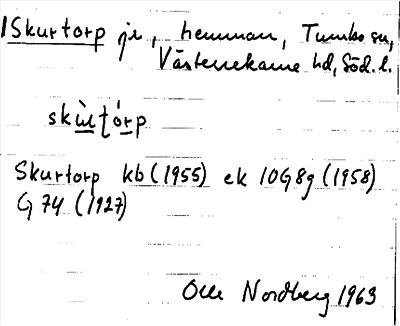 Skurtorp je, hemman, Tumbo sn,
Västerrekarne hd, Söd. l.
skùtórp
Skurtorp kb (1955) ek 10G8g (1958)
G 74 (1927)
Olle Nordberg 1963